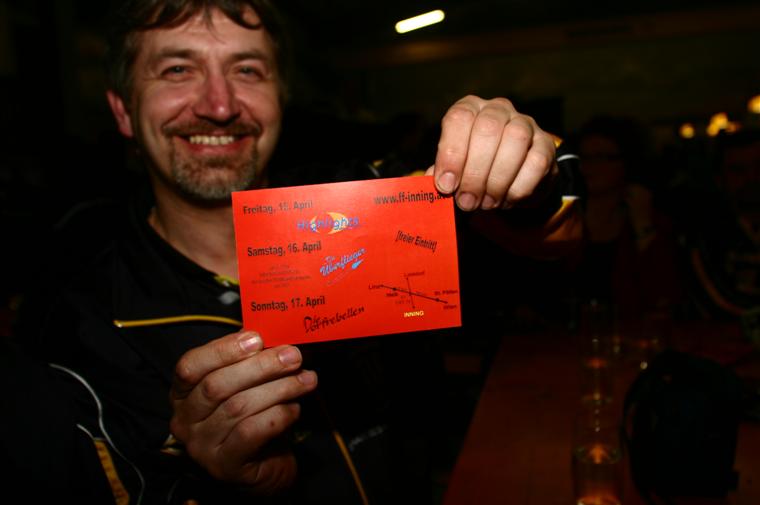 Freitag, 15. April
www.ff-inning.a
Highlights
Samstag, 16. April
[freier Eintritt]
Die
Überflieger
Sonntag, 17. April
Die
Dorfrebellen
Loosdorf
Linz
Melk
St. Pölten
Wien
INNING